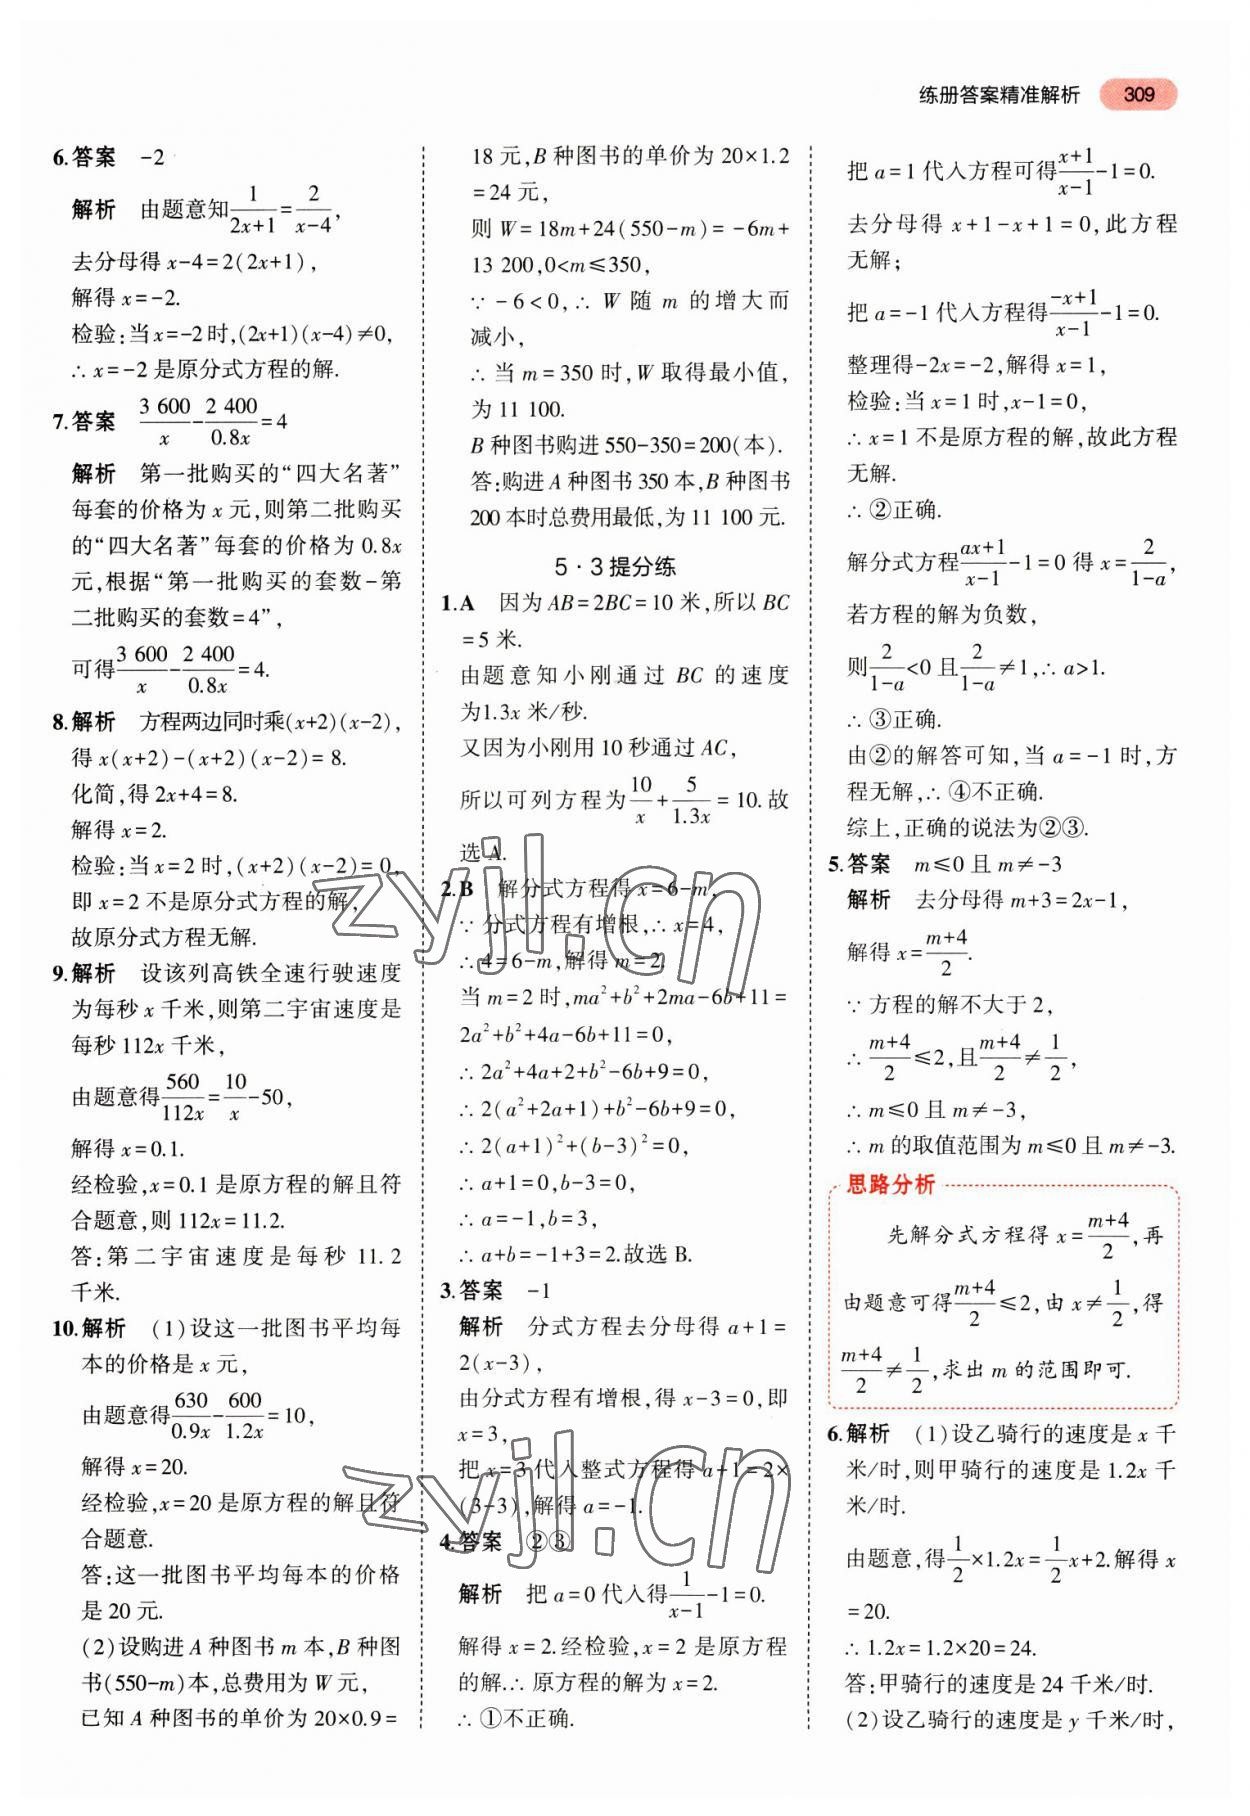 练册答案精准解析 309
6.答案 -2
解析 由题意知1/(2x+1)=2/(x-4),
去分母得 x-4=2(2x+1),
解得 x=-2.
检验:当 x=-2 时,(2x+1)(x-4)≠0,
∴ x=-2 是原分式方程的解.
7.答案 3 600/x-2 400/0.8x=4
解析 第一批购买的“四大名著”
每套的价格为 x 元,则第二批购买
的“四大名著”每套的价格为 0.8x
元,根据“第一批购买的套数-第
二批购买的套数=4”,
可得3 600/x-2 400/0.8x=4.
8.解析 方程两边同时乘(x+2)(x-2),
得 x(x+2)-(x+2)(x-2)=8.
化简,得 2x+4=8.
解得 x=2.
检验:当 x=2 时,(x+2)(x-2)=0,
即 x=2 不是原分式方程的解,
故原分式方程无解.
9.解析 设该列高铁全速行驶速度
为每秒 x 千米,则第二宇宙速度是
每秒 112x 千米,
由题意得560/112x=10/x-50,
解得 x=0.1.
经检验,x=0.1 是原方程的解且符
合题意,则 112x=11.2.
答:第二宇宙速度是每秒 11.2
千米.
10.解析 (1)设这一批图书平均每
本的价格是 x 元,
由题意得630/0.9x-600/1.2x=10,
解得 x=20.
经检验,x=20 是原方程的解且符
合题意.
答:这一批图书平均每本的价格
是 20 元.
(2)设购进 A 种图书 m 本,B 种图
书(550-m)本,总费用为 W 元,
已知 A 种图书的单价为 20×0.9=
18 元,B 种图书的单价为 20×1.2
=24 元,
则 W=18m+24(550-m)=-6m+
13 200,0<m≤350,
∵ -6<0,∴ W 随 m 的增大而
减小,
∴ 当 m=350 时,W 取得最小值,
为 11 100.
B 种图书购进 550-350=200(本).
答:购进 A 种图书 350 本,B 种图书
200 本时总费用最低,为 11 100 元.
5·3提分练
1.A 因为 AB=2BC=10 米,所以 BC
=5 米.
由题意知小刚通过 BC 的速度
为1.3x 米/秒.
又因为小刚用 10 秒通过 AC,
所以可列方程为10/x+5/1.3x=10.故
选 A.
2.B 解分式方程得 x=6-m,
∵ 分式方程有增根,∴ x=4,
∴ 4=6-m,解得 m=2.
当 m=2 时,ma²+b²+2ma-6b+11=
2a²+b²+4a-6b+11=0,
∴ 2a²+4a+2+b²-6b+9=0,
∴ 2(a²+2a+1)+b²-6b+9=0,
∴ 2(a+1)²+(b-3)²=0,
∴ a+1=0,b-3=0,
∴ a=-1,b=3,
∴ a+b=-1+3=2.故选 B.
3.答案 -1
解析 分式方程去分母得 a+1=
2(x-3),
由分式方程有增根,得 x-3=0,即
x=3,
把 x=3 代入整式方程得 a+1=2×
(3-3),解得 a=-1.
4.答案 ②③
解析 把 a=0 代入得1/(x-1)-1=0.
解得 x=2.经检验,x=2 是原方程
的解.∴ 原方程的解为 x=2.
∴ ①不正确.
把 a=1 代入方程可得(x+1)/(x-1)-1=0.
去分母得 x+1-x+1=0,此方程
无解;
把 a=-1 代入方程得(-x+1)/(x-1)-1=0.
整理得-2x=-2,解得 x=1,
检验:当 x=1 时,x-1=0,
∴ x=1 不是原方程的解,故此方程
无解.
∴ ②正确.
解分式方程(ax+1)/(x-1)-1=0 得 x=2/(1-a),
若方程的解为负数,
则2/(1-a)<0 且2/(1-a)≠1,∴ a>1.
∴ ③正确.
由②的解答可知,当 a=-1 时,方
程无解,∴ ④不正确.
综上,正确的说法为②③.
5.答案 m≤0 且 m≠-3
解析 去分母得 m+3=2x-1,
解得 x=(m+4)/2.
∵ 方程的解不大于 2,
∴ (m+4)/2≤2,且(m+4)/2≠1/2,
∴ m≤0 且 m≠-3,
∴ m 的取值范围为 m≤0 且 m≠-3.
思路分析
先解分式方程得 x=(m+4)/2,再
由题意可得(m+4)/2≤2,由 x≠1/2,得
(m+4)/2≠1/2,求出 m 的范围即可.
6.解析 (1)设乙骑行的速度是 x 千
米/时,则甲骑行的速度是 1.2x 千
米/时.
由题意,得1/2×1.2x=1/2x+2.解得 x
=20.
∴ 1.2x=1.2×20=24.
答:甲骑行的速度是 24 千米/时.
(2)设乙骑行的速度是 y 千米/时,
zyjl.cn
zyjl.cn